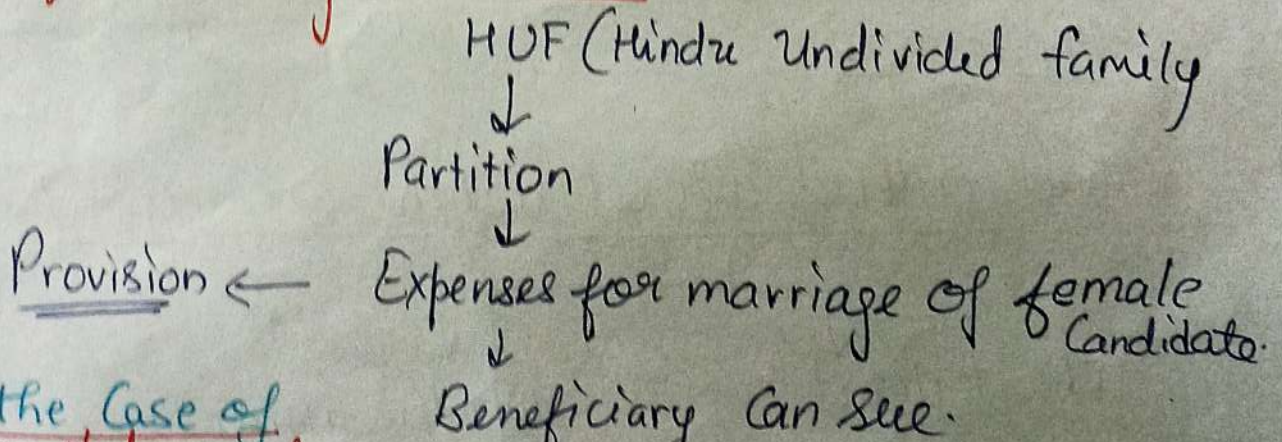 HUF (Hindu Undivided family
↓
Partition
↓
Provision ← Expenses for marriage of female
Candidate.
↓
the Case of Beneficiary Can sue.